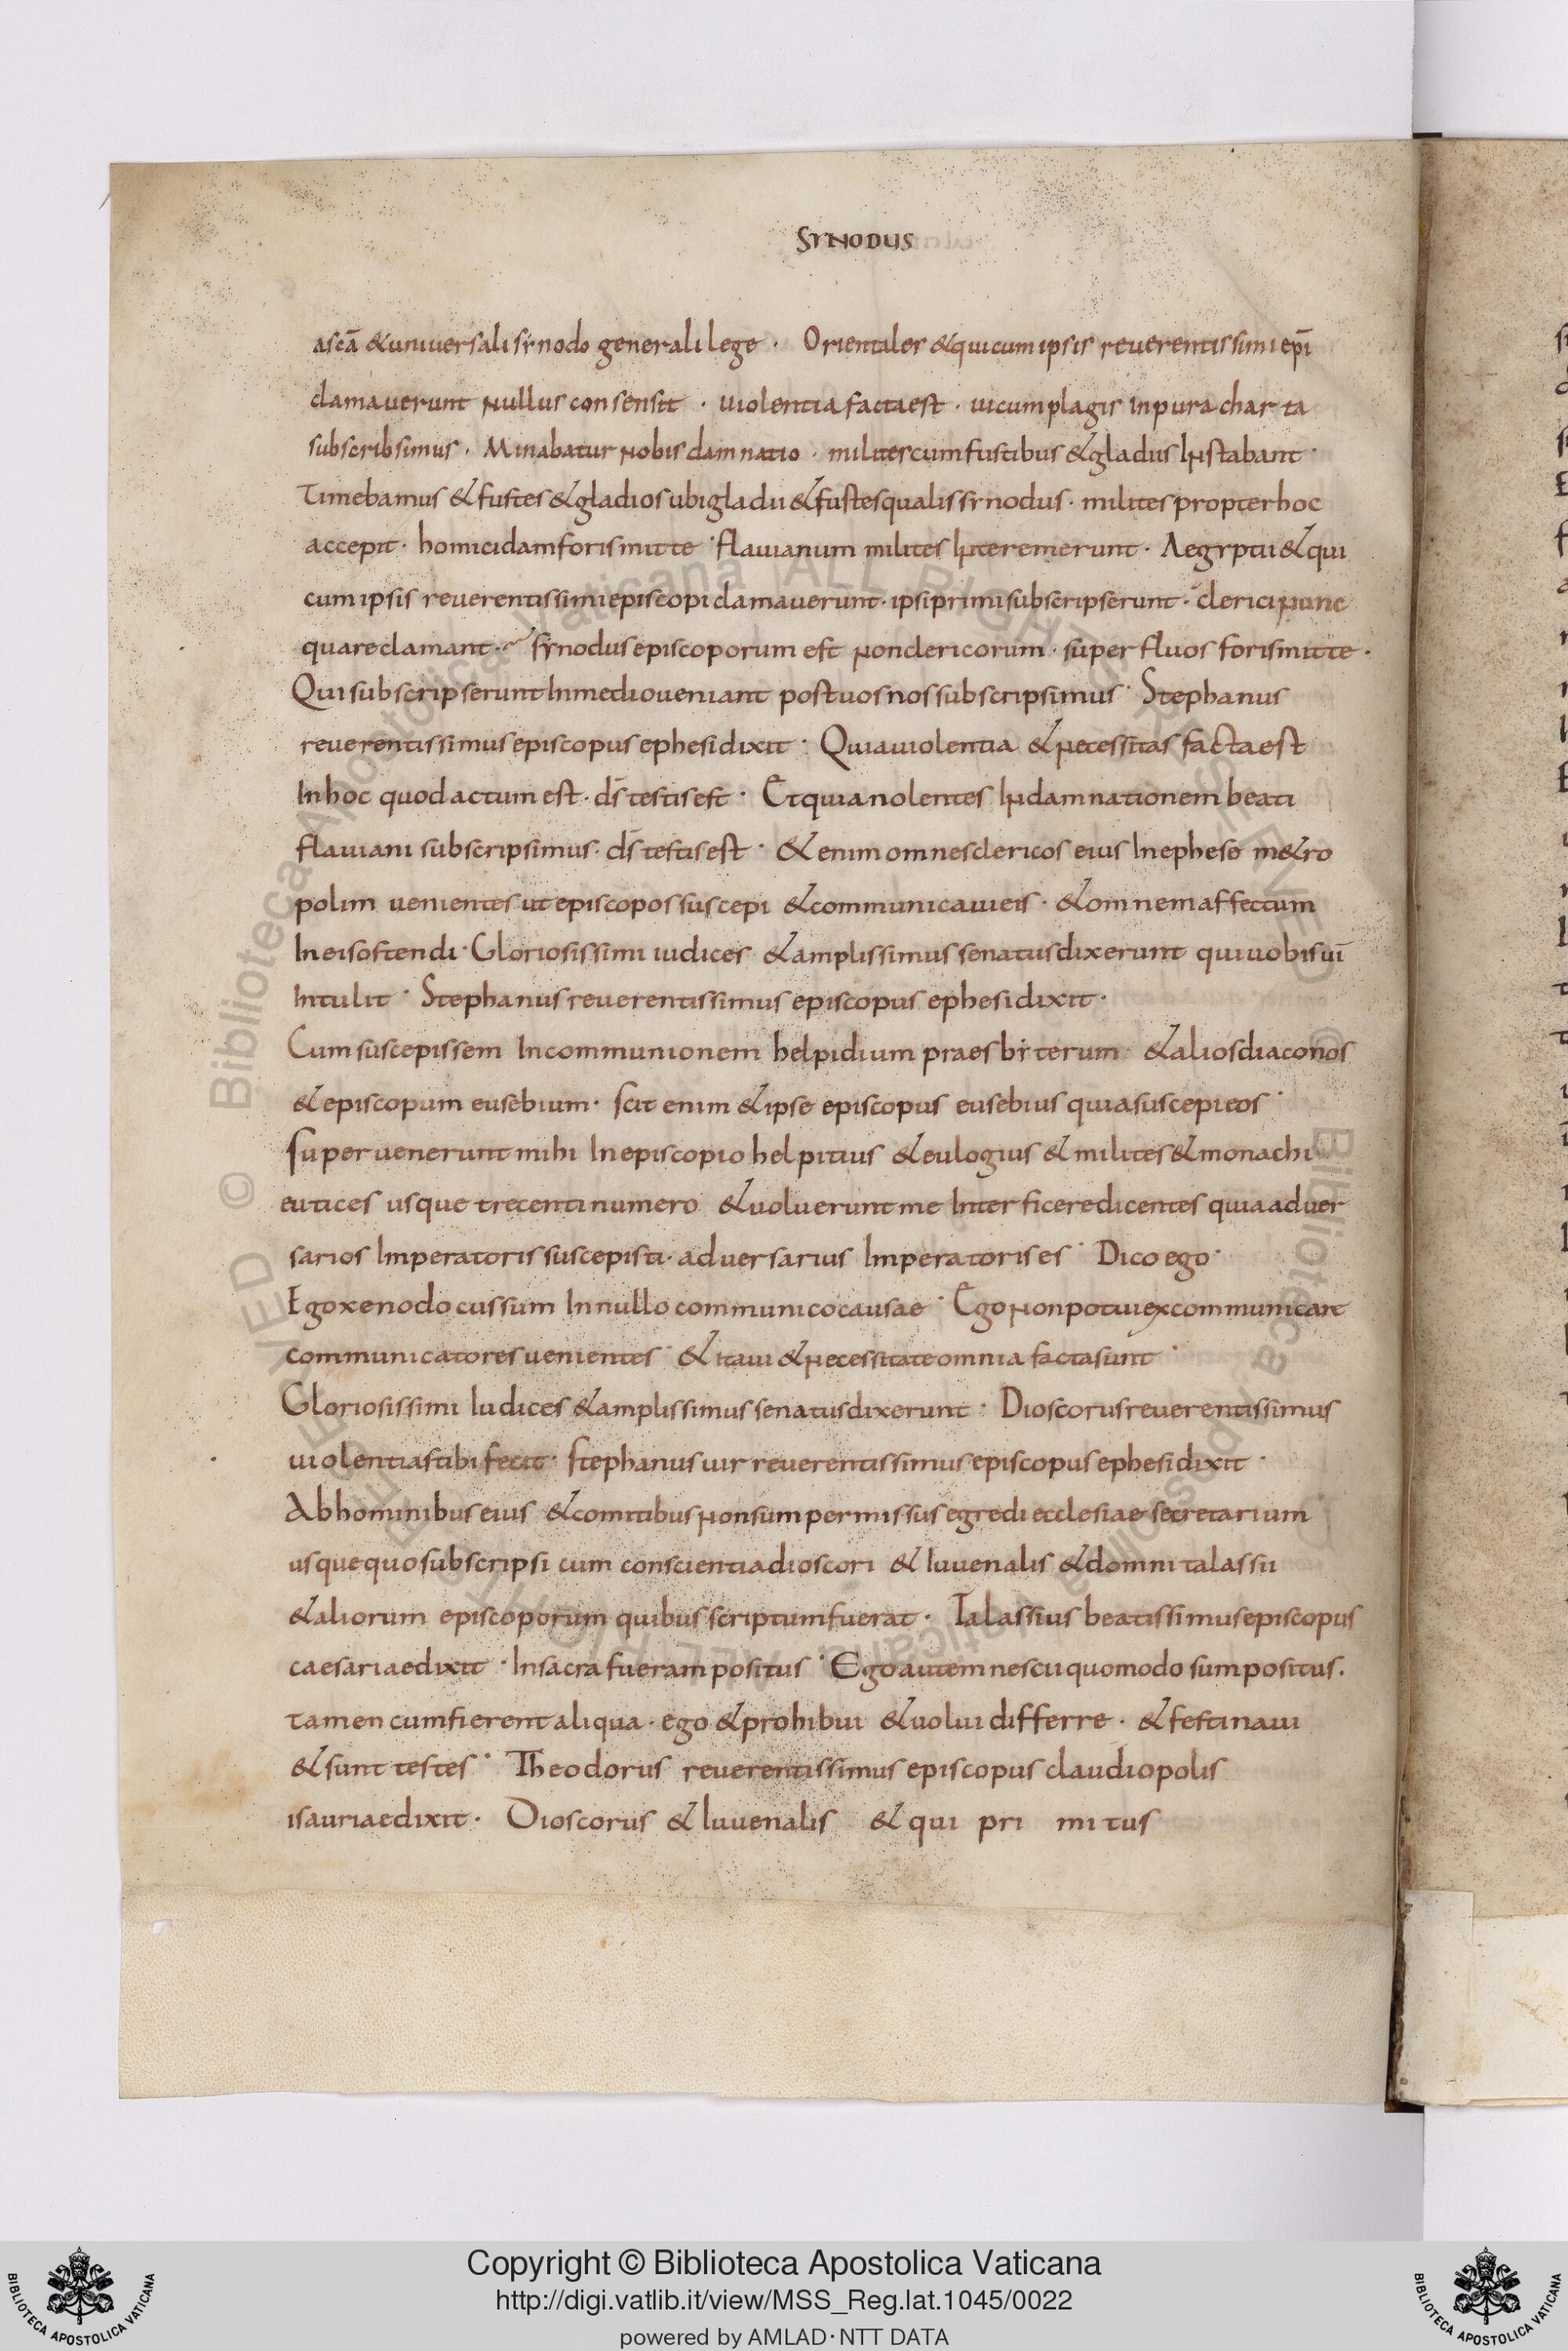 SYNODUS
a scā & universali synodo generali lege · Orientales & qui cum ipsis reverentissimi epī
clamaverunt Nullus consensit · violentia facta est · vi cum plagis in pura charta
subscribsimus · Minabatur nobis damnatio · milites cum fustibus & gladiis instabant ·
Timebamus & fustes & gladios ubi gladii & fustes qualis synodus · milites propter hoc
accepit · homicidam foris mitte · flavianum milites interemerunt · Aegyptii & qui
cum ipsis reverentissimi episcopi clamaverunt · ipsi primi subscripserunt · clerici nunc
quare clamant · synodus episcoporum est non clericorum · superfluos foris mitte ·
Qui subscripserunt In medio veniant post vos nos subscripsimus · Stephanus
reverentissimus episcopus ephesi dixit · Quia violentia & necessitas facta est
In hoc quod actum est · d̄s testis est · Et quia nolentes In damnationem beati
flaviani subscripsimus · d̄s testis est · & enim omnes clericos eius In epheso m&ro
polim venientes ut episcopos suscepi & communicavi eis · & omnem affectum
In eis ostendi · Gloriosissimi iudices & amplissimus senatus dixerunt qui vobis vī
Intulit · Stephanus reverentissimus episcopus ephesi dixit ·
Cum suscepissem In communionem helpidium praesbiterum · & alios diaconos
& episcopum eusebium · scit enim & ipse episcopus eusebius quia suscepi eos ·
supervenerunt mihi In episcopio helpitius & eulogius & milites & monachi
eutices usque trecenti numero & voluerunt me Interficere dicentes quia adver
sarios Imperatoris suscepisti · adversarius Imperatoris es · Dico ego ·
Ego xenodocus sum In nullo communico causae · Ego non potui excommunicare
communicatores venientes · & ita vi & necessitate omnia facta sunt ·
Gloriosissimi Iudices & amplissimus senatus dixerunt · Dioscorus reverentissimus
violentias tibi fecit · stephanus vir reverentissimus episcopus ephesi dixit ·
Ab hominibus eius & comitibus non sum permissus egredi ecclesiae secretarium
usque quo subscripsi cum conscientia dioscori & Iuvenalis & domni talassii
& aliorum episcoporum quibus scriptum fuerat · Talassius beatissimus episcopus
caesariae dixit · In sacra fueram positus · Ego autem nescii quomodo sum positus ·
tamen cum fierent aliqua · ego & prohibui & volui differre · & festinavi
& sunt testes · Theodorus reverentissimus episcopus claudiopolis
isauriae dixit · Dioscorus & Iuvenalis & qui pri mi tus
© Biblioteca Apostolica Vaticana ALL RIGHTS RESERVED
Copyright © Biblioteca Apostolica Vaticana
http://digi.vatlib.it/view/MSS_Reg.lat.1045/0022
powered by AMLAD·NTT DATA
BIBLIOTECA APOSTOLICA VATICANA
BIBLIOTECA APOSTOLICA VATICANA